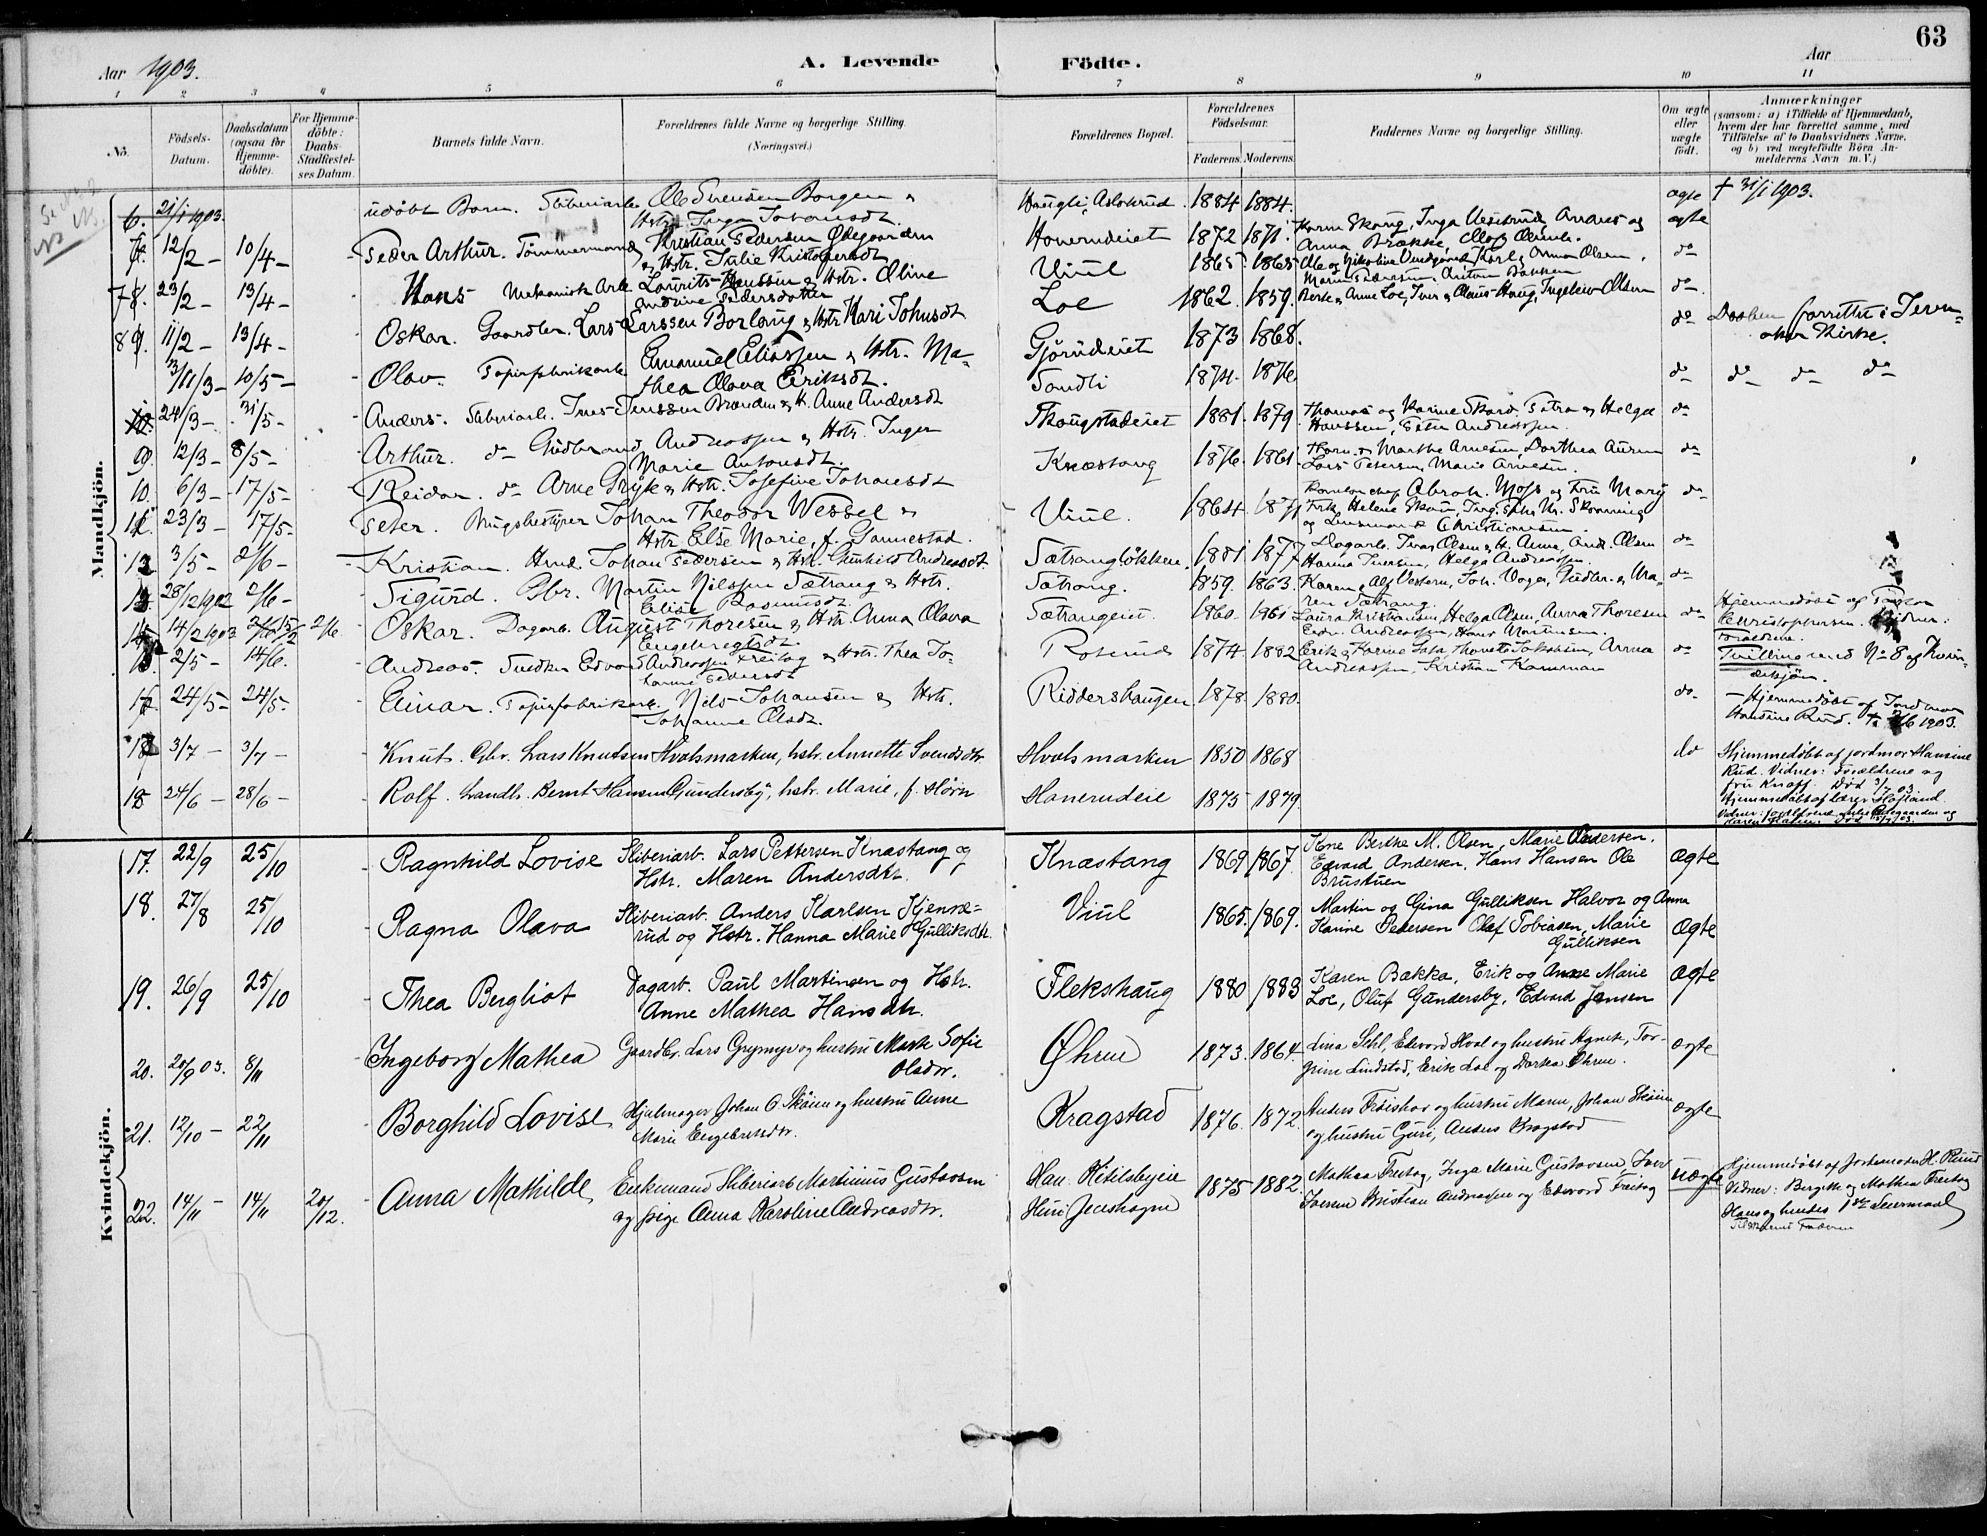 63
Aar 1903.
A. Levende Födte.
Aar
1 2 3 4 5 6 7 8 9 10 11
No.
Födsels-Datum.
Daabsdatum (ogsaa for Hjemme-döbte).
For Hjemme-döbte: Daabs-Stadfæstel-ses Datum.
Barnets fulde Navn.
Forældrenes fulde Navne og borgerlige Stilling.
(Næringsvei.)
Forældrenes Bopæl.
Forældrenes Födselsaar.
Faderens. Moderens.
Faddernes Navne og borgerlige Stilling.
Om ægte eller uægte födt.
Anmærkninger
(saasom: a) i Tilfælde af Hjemmedaab, hvem der har forrettet samme, med Tilföielse af to Daabsvidners Navne, og b) ved uægtefödte Börn An-melderens Navn m. V.)
Mandkjön.
6. 21/1 1903. udøbt Barn. Sliberiarb. Ole Svendsen Borgen &
Hstr. Inga Johansdt. 1884 1884. ægte † 31/1 1903.
12/2 – 10/4 – Peder Arthur. Tømmermand Kristian Pedersen Ødegaarden
& Hstr. Julie Kristofersdt Honerudeiet 1872 1871. Karen Skaug, Inga
Anna Brække, ægte
7 23/2 – 13/4 – Hans Mekanisk Arb. Laurits Hanssen & Hstr. Oline
Andrine Pedersdotter Viul 1865 1865 Ole og Nikoline Karl & Anna Olsen,
Maren Pedersen, Anton Bakken do
8 11/2 – 13/4 – Oskar. Gaardbr. Lars Larssen Borlaug & Hstr Kari Johnsdt Loe 1862 1859. Berte & Anne Loe, Iver & Olaus Haug, Ingeborg Olsen do
/3 – 10/5 – Olav. Papirfabrikarb. Emanuel Eliassen & Hstr. Ma-
thea Olava Eriksdt. Gjørudeiet 1873 1868. do Daaben forrettet i Jevn-
aker Kirke.
24/3 – 31/5 – Anders. Sliberiarb. Jens Jenssen Brænden & H. Anne Andersdt Sandli 1874. 1876 do do do do
9. 12/3 – 8/5 – Arthur. do Gudbrand Andreassen & Hstr. Inger
Marie Antonsdt. Skougstadeiet 1881. 1879. Thomas og Karine Skard. Petra og Helga
Hanssen, Peter Andreassen. do
10. 6/3 – 17/5 – Reidar. do Arne Gryte & Hstr. Josefine Johansdt Knæstang 1876. 1861 Thorn. & Marthe Arnesen, Dorthea
Lars Petersen, Marie Arnesen. do
11 23/3 – 17/5 – Peter. Brugsbestyrer Johan Theodor Wessel &
Hstr. Else Marie, f. Gannestad. Viul. 1864. 1871 Abrah. Moss og Fru Mary
Frk. Helene
og Lensmand Christiansen. do
12 3/5 – 2/6 – Kristian. Hmd. Johan Pedersen & Hstr. Gunhild Andreasdt. Sætrangløkken. 1881 1877 Dagarb. Iver Olsen & H. Anna, And. Olsen
Hanna Iversen, Helga Andreassen. do
13 28/12 1902 2/6 – Sigurd. Gbr. Martin Nilssen Sætrang & Hstr.
Elise Rasmusdt. Sætrang. 1859. 1863. Karen, Alf Vestern, Joh. Gudbr. & Ma-
ren Sætrang. do
14/2 1903 2/6 Oskar. Dagarb. August Thoresen & Hstr. Anna Olava
Engebregtsdt. Sætrangeiet 1860. 1861 Laura Kristiansen, Helga Olsen, Anna Thoresen
Andreassen, Hans Martinsen. do Hjemmedøbt af
Christophersen. Vidner:
Forældrene.
2/5 – 14/6. Andreas. Snedker Edvard Andreassen Freitag & Hstr. Thea Jo-
hanne Pedersdt Roserud 1874. 1882 Erik & Karine Anna
Andreassen, Kristian Kamman do Tvilling med No 8 af Kvin-
dekjøn.
16 24/5 – 24/5. Einar. Papirfabrikarb. Nils Johansen & Hstr.
Johanne Olsdt. Riddershaugen 1878. 1880. do. – Hjemmedøbt af Jordmor
Hansine Ruud. † 2/6 1903.
3/7 – 3/7 – Knut. Gbr. Lars Knudsen Hvalsmarken, hstr. Annette Svendsdtr. Hvalsmarken 1850 1868 do Hjemmedøbt af jordmor Hansine
Rud. Vidner: Forældrene og
fru Knoff. Død 3/7 03.
18 24/6 – 28/6 – Rolf. Landh. Bernt Hansen Gundersby, hstr. Marie, f. Hörn Honerudeie 1875 1879 Hjemmedøbt af lærer
Kvindekjön.
17. 22/9 25/10 Ragnhild Lovise Sliberiarb. Lars Pettersen Knæstang og
Hstr. Maren Andersdtr. Knæstang 1869 1867. Kone Berthe M. Olsen, Marie Pedersen.
Edvard Andersen, Hans Hansen Ole
Brustuen ægte
18. 27/8 25/10 Ragna Olava Sliberiarb. Anders Karlsen Hjensæ-
rud og Hstr. Hanna Marie Gulliksdtr. Viul 1865. 1869. Martin og Gina Gulliksen Halvor og Anna
Karine Pedersen Olaf Tobiasen, Marie
Gulliksen ægte
19. 26/9 25/10 Thea Bergliot Dagarb. Paul Martinsen og Hstr.
Anne Mathea Hansdtr. Flekshaug 1880 1883 Karen Bakka, Erik og Anne Marie
Loe, Oluf Gundersby, Edvard Jensen ægte
20. 20/9 03. 8/11 Ingeborg Mathea Gaardbr. Lars Grymyr og hustru Marte Sofie
Olsdtr. Øhren 1873. 1864. Lina Sehl, Edvard Hval og hustru Agnete, Tor-
grim Lindstad, Erik Loe og Dorthea Øhren. ægte
21. 12/10 – 22/11 Borghild Lovise Hjulmager Johan O. Skøien og hustru Anne
Marie Engebretsdtr. Kragstad 1876. 1872. Anders Frøishov og hustru Maren, Johan Skøien
og hustru Guri, Anders Kragstad ægte
22. 14/11 – 14/11 20/12. Anna Mathilde Enkemand Sliberiarb. Martinius Gustavsen
og pige Anna Karoline Andreasdtr. Han: Ketilsbyeie
Hun: Jenshagen 1875 1882. Mathea Freitag, Inga Marie Gustavsen, Iver
Iversen Kristian Andreassen og Edvard Freitag uægte Hjemmedøbt af Jordemoder H. Ruud
Vidner: Bergitte og Mathea Freitag
Hans og hendes 1ste Leiermaal